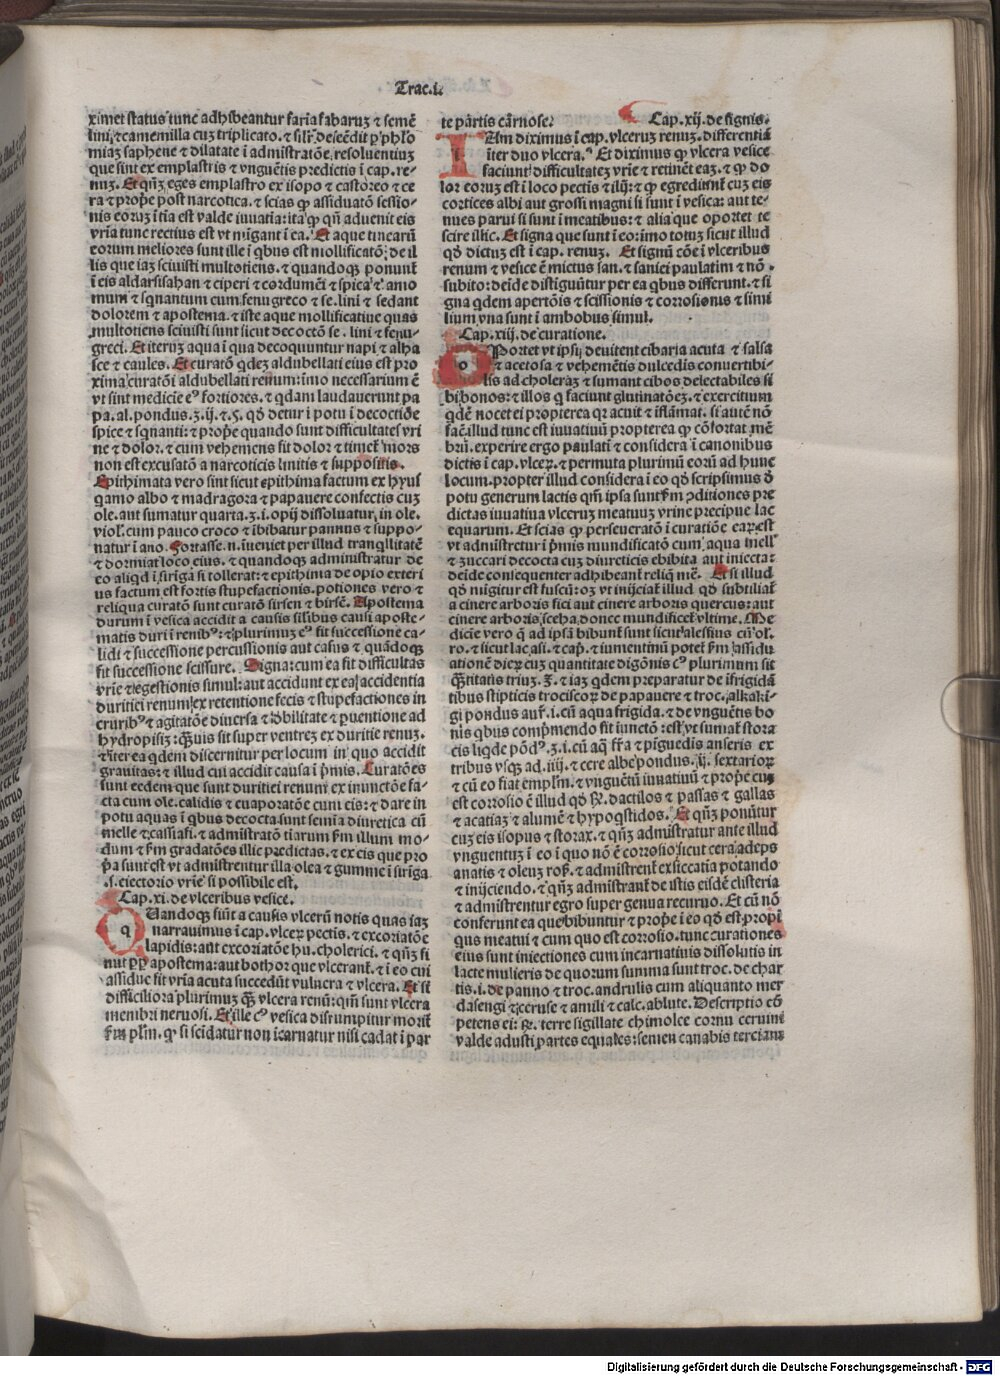 Trac.i.
ximet status tunc adhibeantur faria fabarum et semē
lini, et camemilla cuz triplicato. et silr̄ descēdit p̱ phlo
miaz saphene et dilatate ī admistratōe, resoluentiuz
que sint ex emplastris et vnguētis predictis ī cap. re-
nuz. Et qn̄z eges emplastro ex isopo et castoreo et ce
ra et prope post narcotica. et scias ꝙ assiduatō sessio-
nis eorum ī tīa est valde iuuatia: ita ꝙ qn̄ aduenit eis
vrīa tunc rectius est vt mīgant ī ea. Et aque tinearū
eorum meliores sunt ille ī qbus est mollificatō; de il
lis que iaz sciuisti multotiens. et quandoqz ponunt̄
ī eis aldarsisahan et ciperi et cordumēi et spica et amo
mum et sqnantum cum fenugreco et se. lini et sedant
dolorem et apostema. et iste aque mollificatiue quas
multotiens sciuisti sunt sicut decoctō se. lini et fenu-
greci. Et iteruz aqua ī qua decoquuntur napi et alha
sce et caules. Et curatō qdez aldubellati eius est pro
xima curatōi aldubellati renum: imo necessarium ē
vt sint medicie eꝰ fortiores. et qdam laudauerunt pa
pa. al. pondus. ʒ. ij. et s. qd̄ detur ī potu ī decoctiōe
spice et sqnanti: et prope quando sunt difficultates vri
ne et dolor. et cum vehemens fit dolor et timet̄ mors
non est excusatō a narcoticis linitis et suppositis.
Epithimata vero sint sicut epithima factum ex hyus
qamo albo et madragora et papauere confectis cuz
ole. aut sumatur quarta. ʒ. i. opij dissoluatur in ole.
viol. cum pauco croco et ībibatur pannus et suppo-
natur ī ano. Fortasse. n. īueniet per illud tranqllitatē
et dormiat loco eius. et quandoqz administratur de
eo aliqd ī siriga si tollerat: et epithima de opio exteri
us factum est fortis stupefactionis. potiones vero et
reliqua curatō sunt curatō sirsen et birsē. Apostema
durum ī vesica accidit a causis silibus causī aposte-
matis duri ī renibꝰ: et plurimuz eꝰ fit successione ca-
lidi et successione percussionis aut casus et quādoqz
fit successione scissure. Signa: cum ea fit difficultas
vrīe et egestionis simul: aut accidunt ex ea accidentia
duritiei renum ex retentione fecis et stupefactiones in
cruribꝰ et agitatōe diuersa et debilitate et puentione ad
hydropisiz: q̄uis sit super ventrez ex duritie renuz.
et iter ea qdem discernitur per locum in quo accidit
grauitas: et illud cui accidit causa ī pmis. Curatōes
sunt eedem que sunt duritiei renum ex inunctōe fa-
cta cum ole. calidis et euaporatōe cum eis: et dare in
potu aquas ī qbus decocta sunt semīa diuretica cū
melle et cassiafi. et admistratō tiarum ẜm illum mo-
dum et ẜm gradatōes illic predictas. et ex eis que pro
p̄a sunt est vt admistrentur illa olea et gumme ī siriga
.s. eiectorio vrīe si possibile est.
Cap. xi. de vlceribus vesice.
qUandoqz fiūt a causis vlcerū notis quas iaz
narrauimus ī cap. vlcerꝝ pectis. et excoriatōe
lapidis: aut excoriatōe hu. cholerici. et qn̄z fi
unt pp̄ apostema: aut bothor que vlcerant̄. et ī eo cui
assidue fit vrīa acuta succedūt vulnera et vlcera. Et sī
difficiliora plurimuz q̄z vlcera renū: qm̄ sunt vlcera
membri neruosi. Et ille cꝰ vesica disrumpitur morit̄
ẜm plm̄. ꝙ si scidatur non īcarnatur nisi cadat ī par
te partis cārnose.
Cap. xij. de signis.
IAm diximus ī cap. vlceruz renuz. differentiā
īter duo vlcera. Et diximus ꝙ vlcera vesice
faciunt difficultatez vrie et retinēt eaz. et ꝙ do
lor eoruz est ī loco pectis et ilijꝫ: et ꝙ egrediunt̄ cuz eis
cortices albi aut grossi magni si sunt ī vesica: aut te-
nues parui si sunt ī meatibus: et alia que oportet te
scire illic. Et signa que sunt ī eo: imo totuz sicut illud
qd̄ dictuz est ī cap. renuz. Et signū cōe ī vlceribus
renum et vesice ē mictus san. et saniei paulatim et nō
subito: deide distiguūtur per ea qbus differunt. et si
gna qdem apertōis et scissionis et corrosionis et simi
lium vna sunt ī ambobus simul.
Cap. xiij. de curatione.
oPortet vt ipsi deuitent cibaria acuta et salsa
et acetosa et vehemētis dulcedis conuertibi-
lis ad choleraz et sumant cibos delectabiles si
bi bonos: et illos q faciunt glutinatōez. et exercitium
qdē nocet ei propterea qr acuit et īflāmat. si autē nō
facē illud tunc est iuuatiuū propterea ꝙ cōfortat mē
brū. experire ergo paulatī et considera ī canonibus
dictis ī cap. vlceꝝ. et permuta plurimū eorū ad hunc
locum. propter illud considera ī eo qd̄ scripsimus ō
potu generum lactis qm̄ ipsa sunt ẜm ꝯditiones pre
dictas iuuatiua vlceruz meatuuz vrine precipue lac
equarum. Et scias ꝙ perseueratō ī curatiōe earꝝ est
vt admistretur ī pmis mundificatō cum aqua mell̄
et zuccari decocta cuz diureticis ebibita aut iniecta:
deide consequenter adhibeant̄ reliq mē. Et si illud
qd̄ mīgitur est fuscū: oꝫ vt inijciat̄ illud qd̄ subtiliat̄
a cinere arboris fici aut cinere arboris quercus: aut
cinere arboris sceha, donec mundificet̄ vltime. Me
dicie vero q ad ipsā bibunt̄ sunt sicut alessius cū ol.
ro. et sicut lac asi. et cap. et iumentinū potet̄ ẜm assidu
ationē dieꝝ cuz quantitate digōnis eꝰ plurimum sit
q̄titatis triuz. ʒ. et iaz qdem preparatur de ifrigidā
tibus stipticis trociscoꝝ de papauere et troc. alkaki-
gi pondus aur̄. i. cū aqua frigida. et de vnguētis bo
nis qbus compmendo fit iunctō: est vt sumat̄ stora
cis liqde pōdꝰ. ʒ. i. cū aq̄ fr̄a et pīguedis anseris ex
tribus vsqz ad. iiij. et cere albe pondus. ij. sextarioꝝ
et cū eo fiat emplm̄. et vnguētū iuuatiuū et prope cuz
est corrosio ē illud qd̄ ℞. dactilos et passas et gallas
et acatiaz et alumē et hypoqstidos. Et qn̄z ponūtur
cuz eis isopus et storax. et qn̄z admistratur ante illud
vnguentuz ī eo ī quo nō ē corrosio sicut cera adeps
anatis et oleuz ros̄. et admistrent̄ exsiccatia potando
et inijciendo. et qn̄z admistrant̄ de istis eisdē clisteria
et admistrentur egro super genua recuruo. Et cū nō
conferunt ea que bibuntur et prope ī eo qd̄ est propī
quus meatui et cum quo est corrosio. tunc curationes
eius sunt iniectiones cum incarnatiuis dissolutis in
lacte mulieris de quorum summa sunt troc. de char
tis. i. de panno et troc. andrulis cum aliquanto mer
dasengi et ceruse et amili et calc. ablute. Descriptio cō
petens ei: ℞. terre sigillate chimolee cornu ceruini
valde adusti partes equales: semen canabis terciam